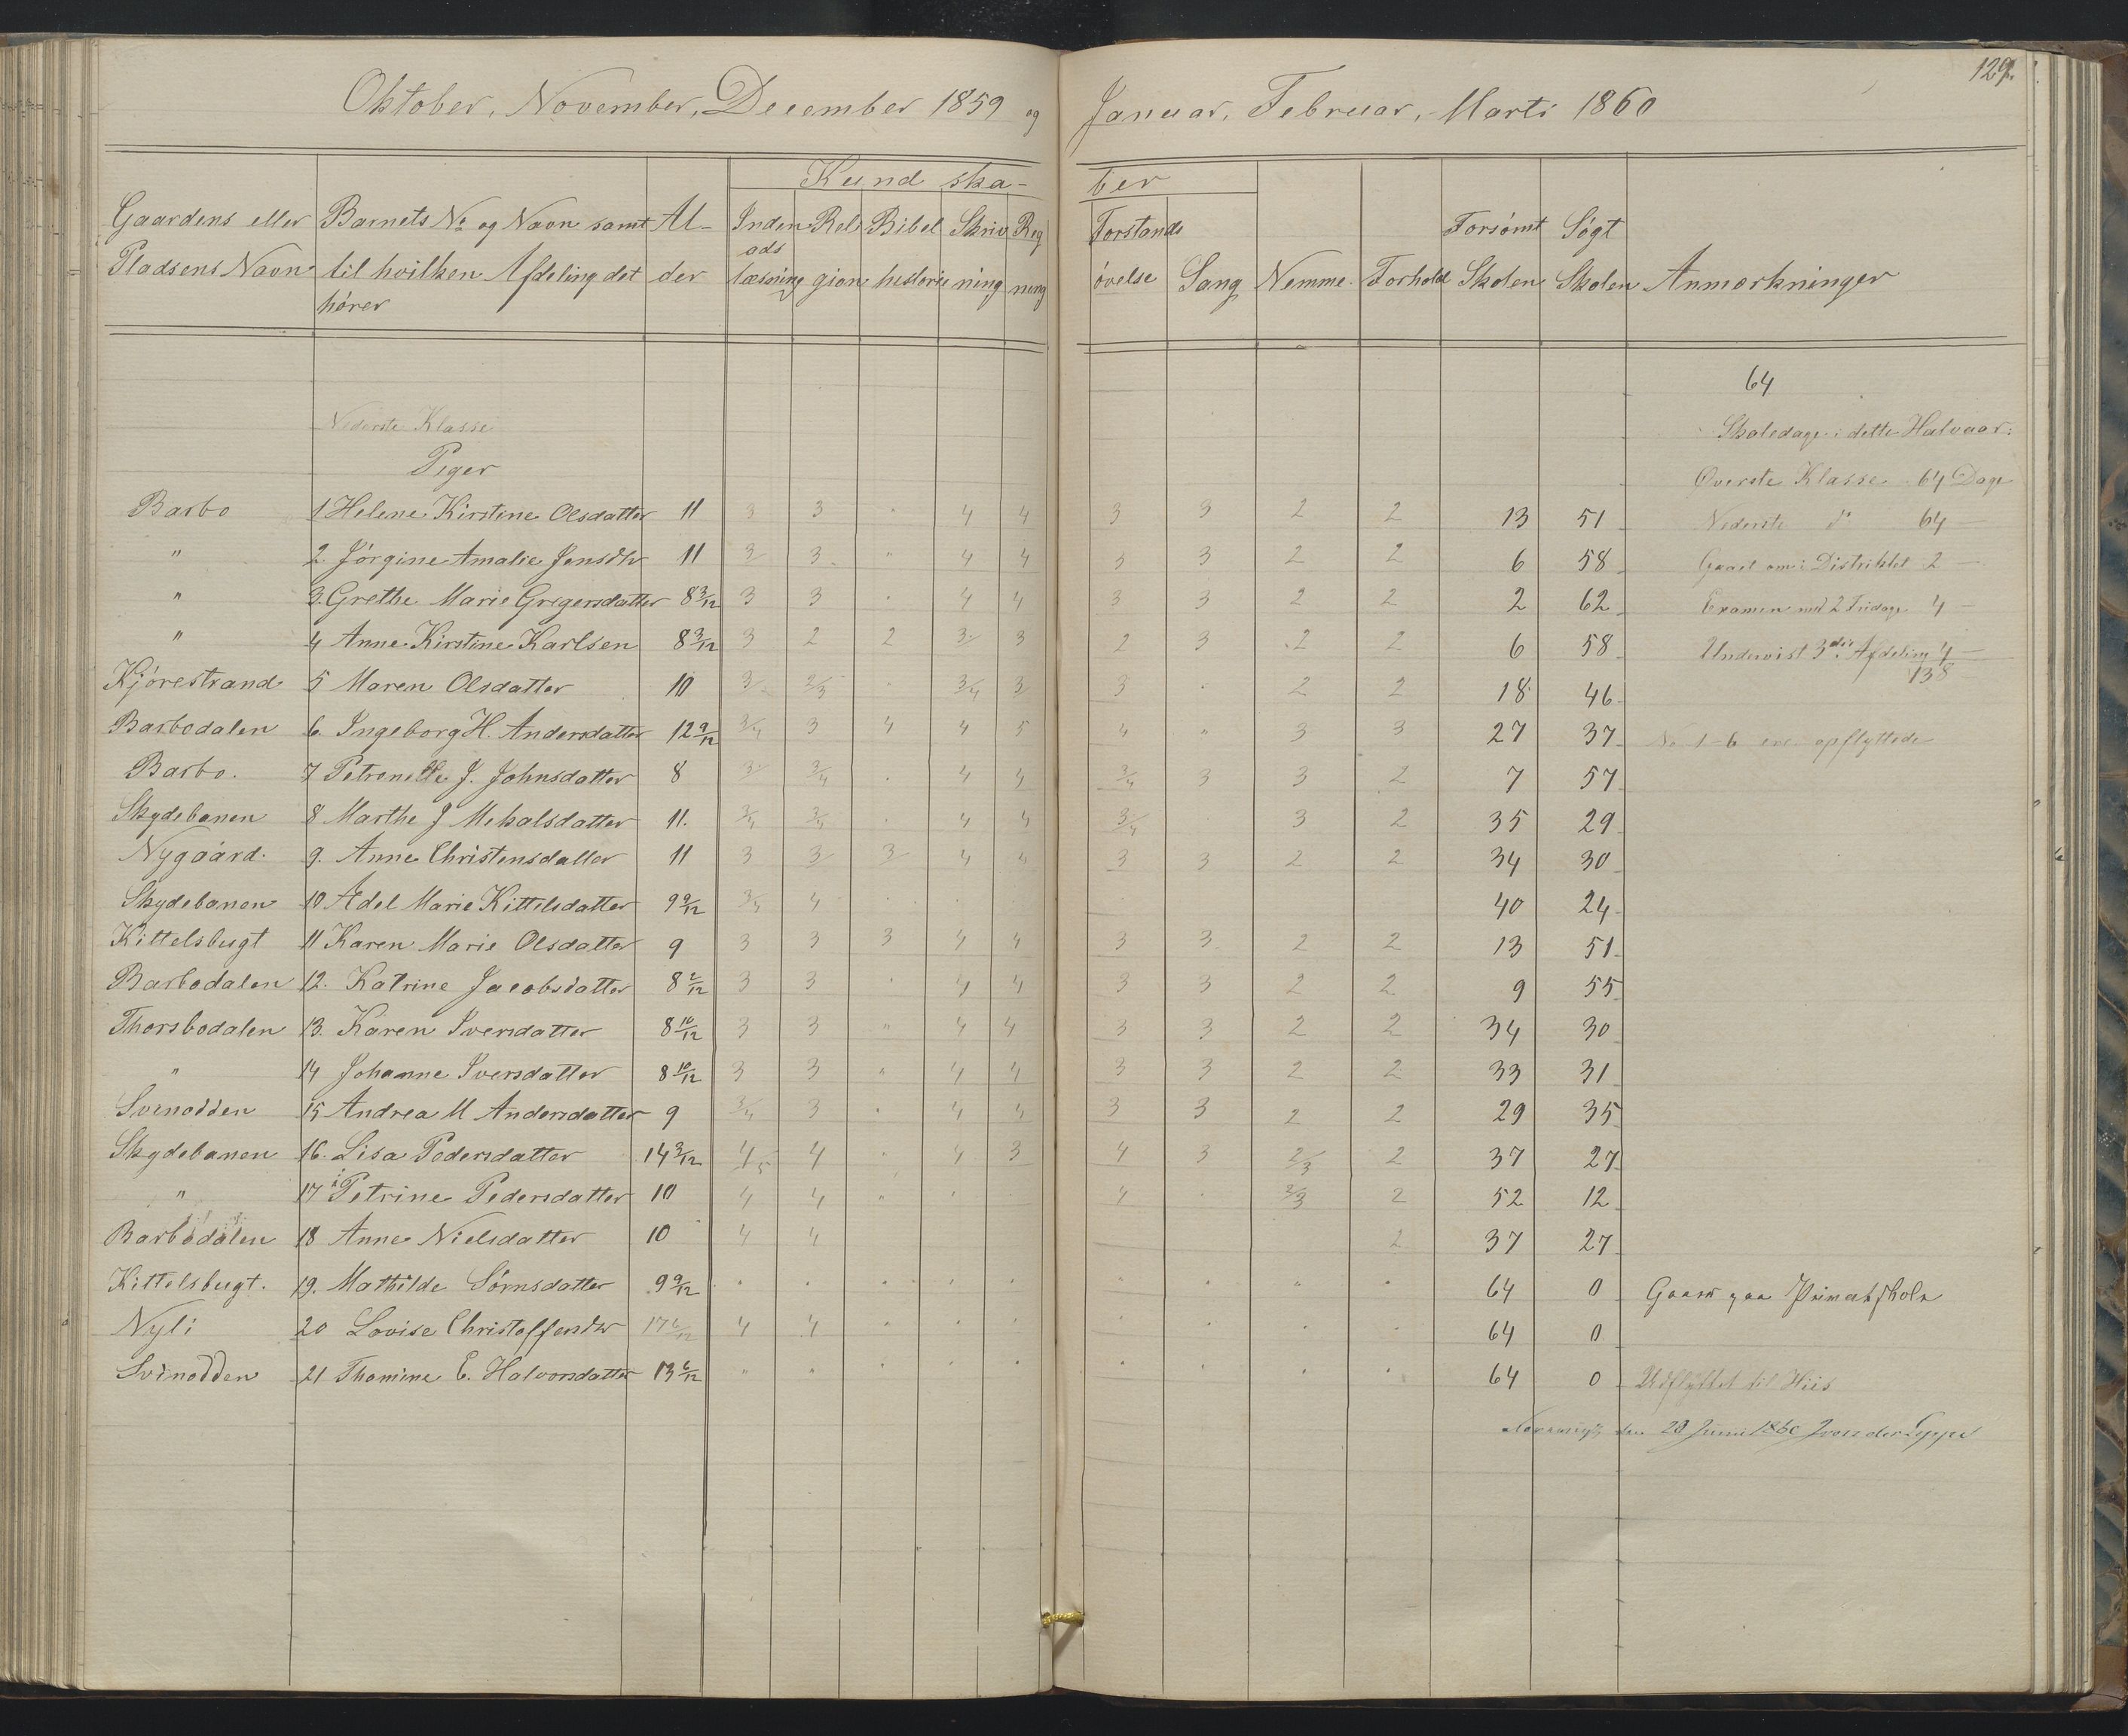 129.
Oktober, November, December 1859 og Januar, Februar, Marts 1860
Kund ska- ber
Gaardens eller Barnets No og Navn samt Al- Inden Reli Bibel Skriv Reg Forstands Forsømt Søgt
ads
Pladsens Navn til hvilken Afdeling det der læsning gion historie ning ning øvelse Sang Nemme Forhold Skolen Skolen Anmærkninger
hører
64
Nederste Klasse Skoledage i dette Halvaar:
Piger Øverste Klasse 64 Dage
Barbo 1 Helene Kirstine Olsdatter 11 3 3 " 4 4 3 3 2 2 13 51 Nederste do 64 —
" 2. Jørgine Amalie Jensdtr 11 3 3 " 4 4 3 3 2 2 6 58 Gaaet om i Distriktet 2 —
" 3. Grethe Marie Gregersdatter 8 3/12 3 3 " 4 4 3 3 2 2 2 62 Examen med 2 Fridage 4 —
" 4 Anne Kirstine Karlsen 8 3/12 3 2 2 3 3 2 3 2 2 6 58 Undervist 3die Afdeling 4 —
138
Kjørestrand 5 Maren Olsdatter 10 3 2/3 " 3/4 3 3 " 2 2 18 46
Barbodalen 6. Ingeborg H. Andersdatter 12 9/12 3/4 3 4 4 5 4 " 3 3 27 37 No 1-6 ere opflyttede
Barbo. 7 Petronelle J. Johnsdatter 8 3 3/4 " 4 4 3/4 3 3 2 7 57
Skydebanen 8 Marthe J Mekalsdatter 11. 3/4 3/4 " 4 4 3/4 3 2 35 29
Nygaard. 9. Anne Christensdatter 11 3 3 3 4 4 3 3 2 2 34 30
Skydebanen 10 Adel Marie Kittelsdatter 9 9/12 3/4 4 " " 40 24
Kittelsbugt 11 Karen Marie Olsdatter 9 3 3 3 4 4 3 3 2 2 13 51
Barbodalen 12. Katrine Jacobsdatter 8 2/12 3 3 " 4 4 3 3 2 2 9 55
Thorsbodalen 13. Karen Iversdatter 8 10/12 3 3 " 4 4 3 3 2 2 34 30
" 14 Johanne Iversdatter 8 10/12 3 3 " 4 4 3 3 2 2 33 31
Svinodden 15 Andrea M Andersdatter 9 3/4 3 " 4 4 3 3 2 2 29 35
Skydebanen 16. Lisa Pedersdatter 14 3/12 4/5 4 " 4 3 4 3 2/3 2 37 27
" 17 Petrine Pedersdatter 10 4 4 " " 4 " 2/3 2 52 12
Barbodalen 18 Anne Nielsdatter 10 4 4 2 37 27
Kittelsbugt. 19. Mathilde Sørnsdatter 9 9/12 " " " " " " " " " 64 0 Gaar paa Privatskole
Nyli 20 Lovise Christoffersdtr 4 4 " " " " " " " 64 0
Svinodden 21 Thomine E. Halvorsdatter 13 6/12 " " " " " " " " " 64 0 Udflyttet til Hiis
den 20 Juni 1860